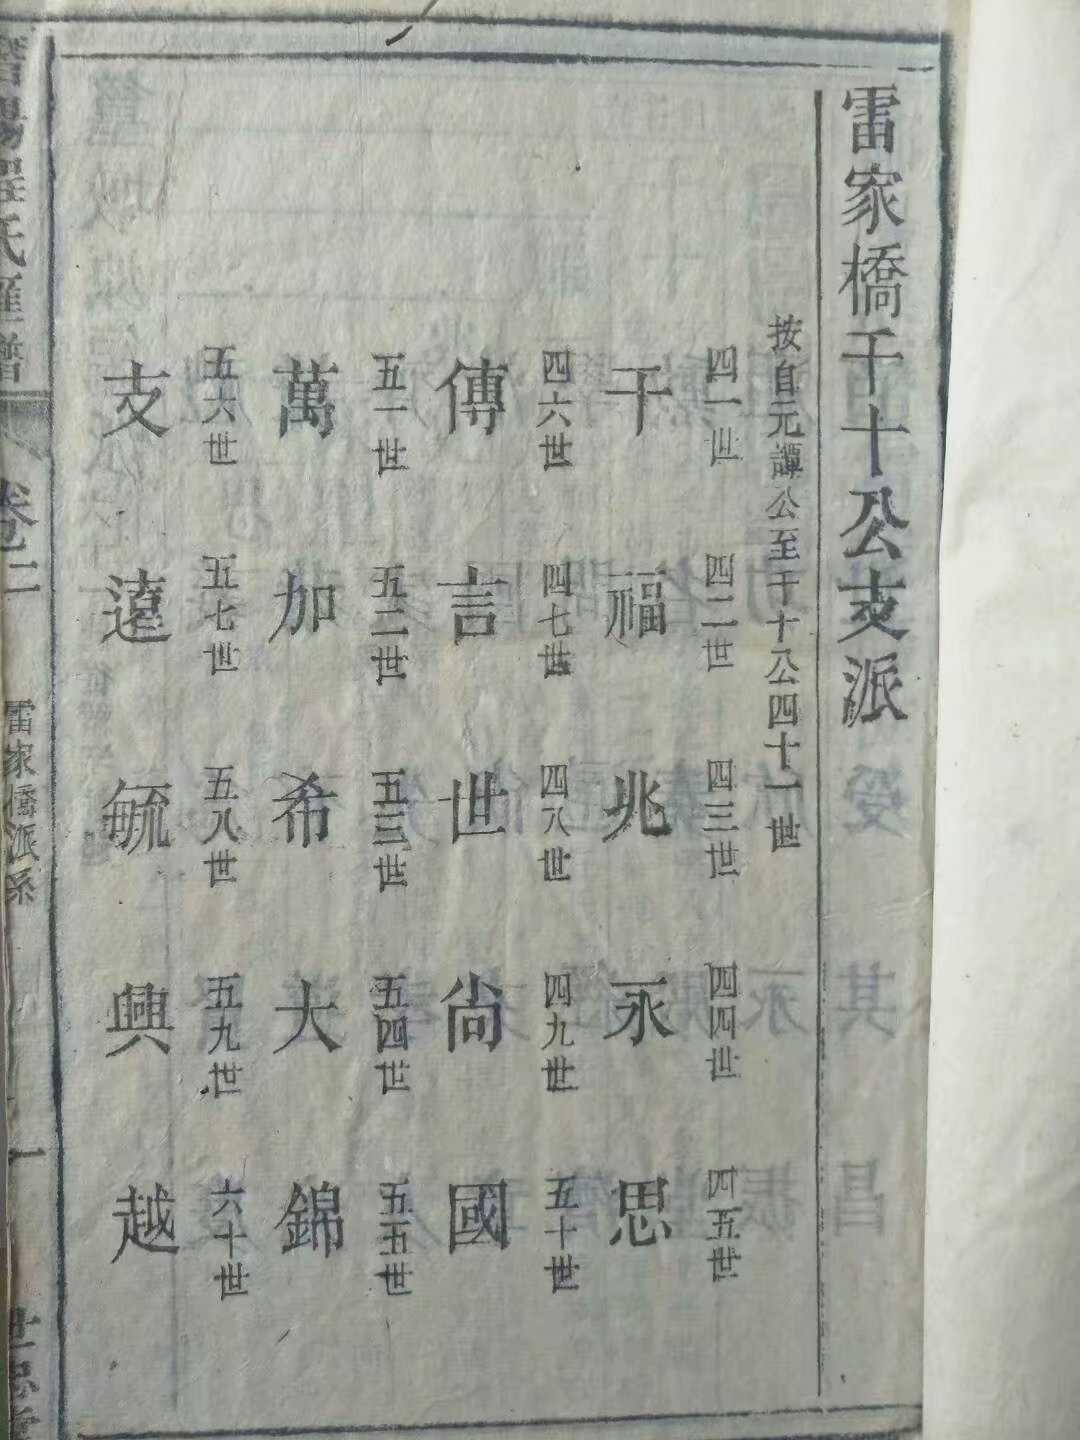 雷家橋干十公支派
按自元譚公至干十公四十一世
四一世 四二世 四三世 四四世 四五世
干 福 兆 永 思
四六世 四七世 四八世 四九世 五十世
傳 言 世 尚 國
五一世 五二世 五三世 五四世 五五世
萬 加 希 大 錦
五六世 五七世 五八世 五九世 六十世
支 遠 毓 興 越
氏
譜
卷二
雷家橋派系
一
世忠堂